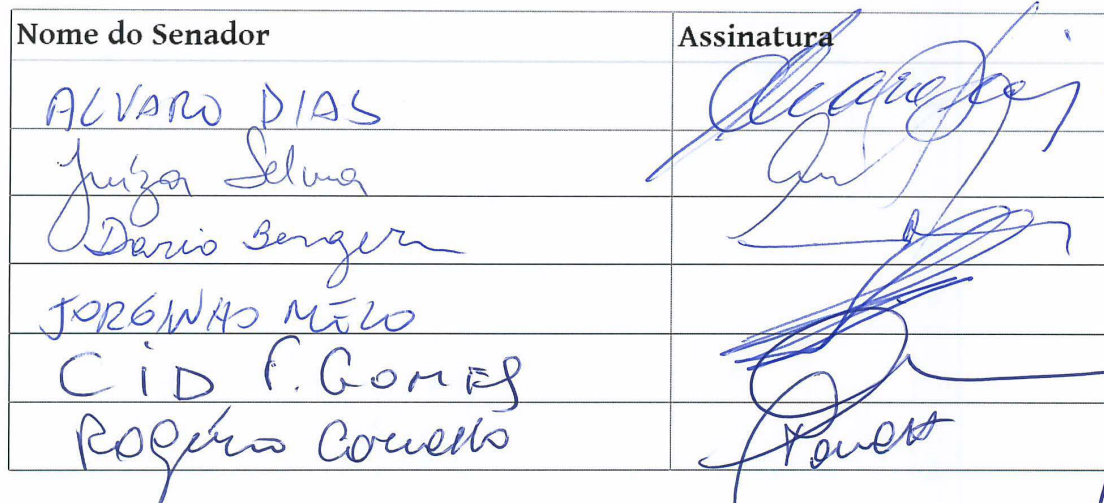 Nome do Senador Assinatura
ALVARO DIAS
Juíza Selma
Dario Berger
JORGINHO MELLO
CID F. GOMES
Rogério Carvalho